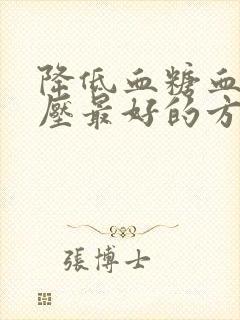 降低血糖血
壓最好的方
張博士